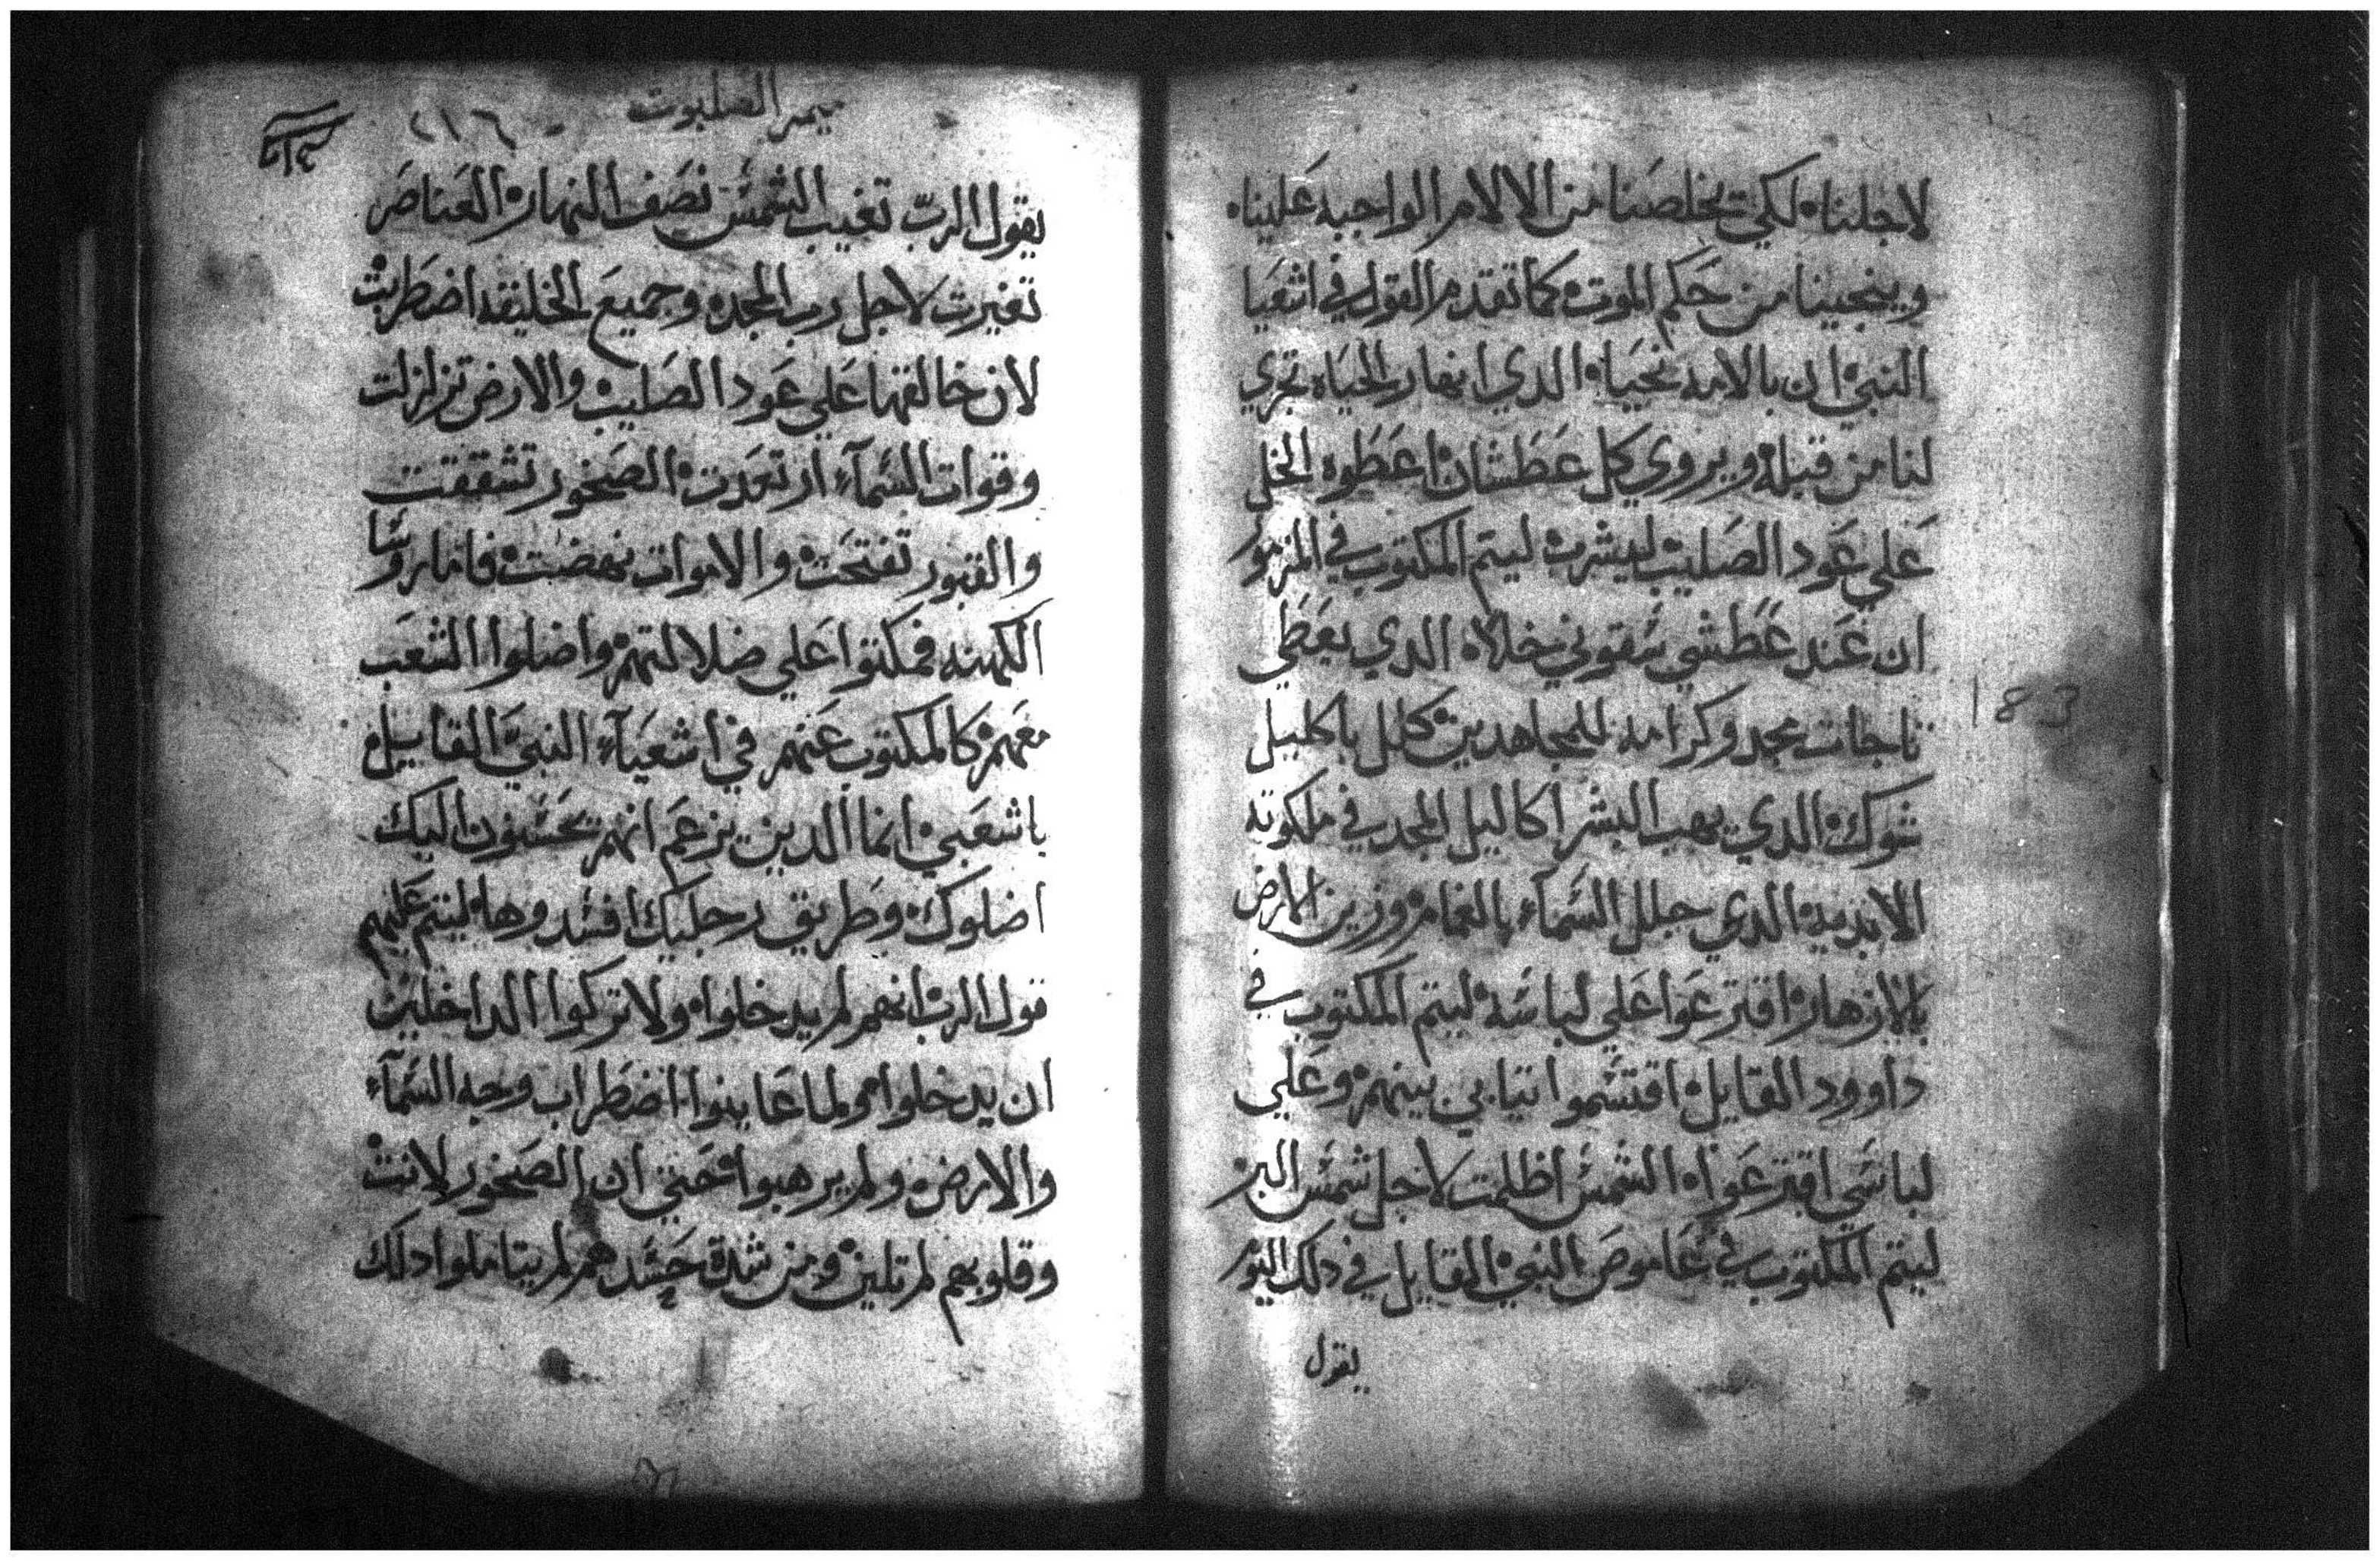 لاجلناه لكي يخلصنا من الالام الواجبه علينا
وينجينا من حكم الموت كما تقدم القول في اشعيا
النبي ان بالامه نحيا الدي انهار الحياه تجري
لنا من قبله ويروي كل عطشان اعطوه الخل
علي عود الصليب ليشرب ليتم المكتوب في المزمور
ان عند عطشي سقوني خلاه الدي يعطي
تاجات مجد وكرامه للمجاهدين كلل باكليل
شوك الدي يهب البشر اكاليل المجد في ملكوته
الابديه الدي جلل السمآء بالغمام وزين الارض
بالازهار اقترعوا علي لباسه ليتم المكتوب في
داوود القايل اقتسموا تيابي بينهم وعلي
لباسي اقترعوا الشمس اظلمت لاجل شمس البر
ليتم المكتوب في عاموص النبي القايل في دلك اليوم
يقول
183
ميمر الصلبوت
٢١٦
يقول الرب تغيب الشمس نصف النهار العناصر
تغيرت لاجل رب المجد وجميع الخليقه اضطربت
لان خالقها علي عود الصليب والارض تزلزلت
وقوات السمآء ارتعدت الصخور تشققت
والقبور تفتحت والاموات نهضت فاما روسا
الكهنه فمكتوا علي ضلالتهم واضلوا الشعب
معهم كالمكتوب عنهم في اشعيآء النبي القايل
ياشعبي انما الدين يزعم انهم يحسنون اليك
اضلوك وطريق رجليك افسدوها ليتم عليهم
قول الرب انهم لم يدخلوا ولا تركوا الداخلين
ان يدخلوا ولما عاينوا اضطراب وجه السمآء
والارض ولم يرهبوا حتي ان الصخور لانت
وقلوبهم لم تلين ومن شدة حسدهم لم يتاملوا دلك